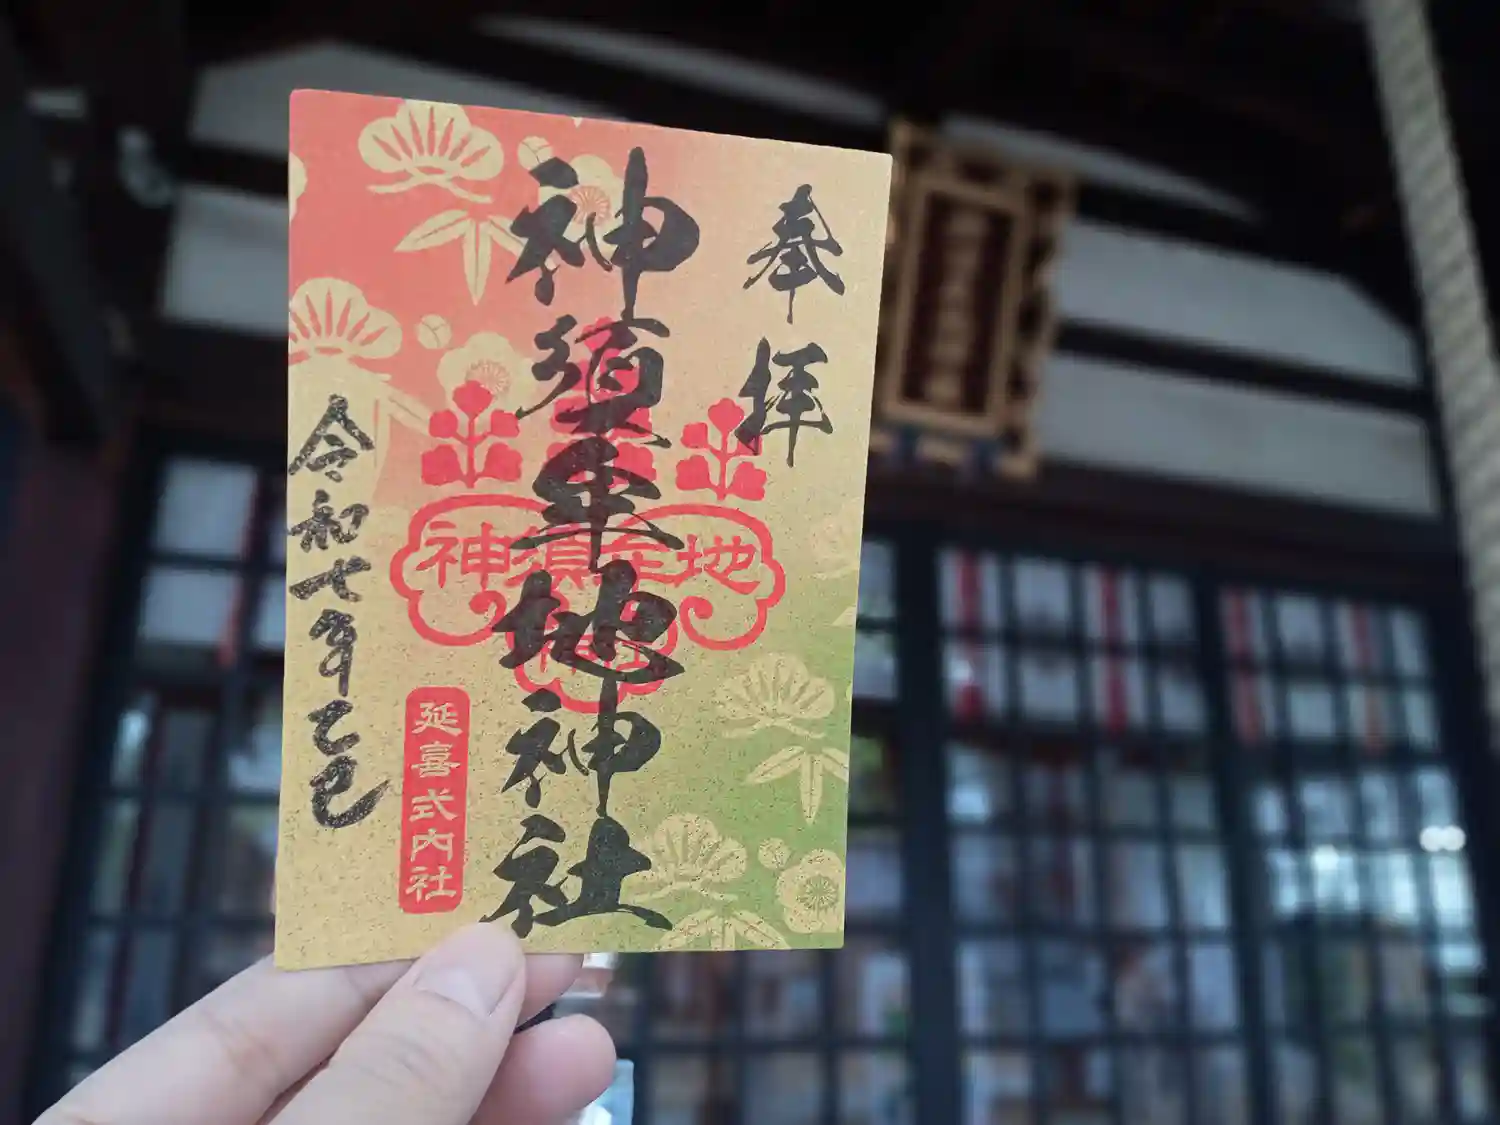 奉拝
神須牟地神社
神須牟地
神社
令和七年乙巳
延喜式内社